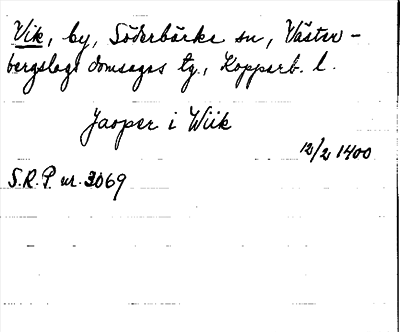 Vik, by, Söderbärke sn, Väster-
bergslags domsagas tg., Kopparb. l.
Jasper i Wiik
12/2 1400
S.R.P. nr. 3069